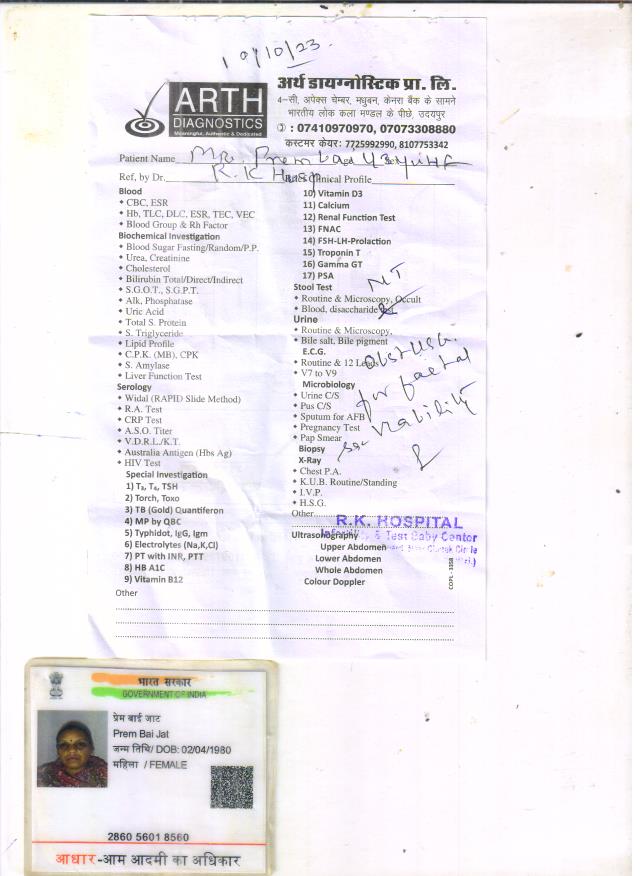 10/10/23
ARTH
DIAGNOSTICS
Meaningful, Authentic & Dedicated
अर्थ डायग्नोस्टिक प्रा. लि.
4-सी, अपेक्स चेम्बर, मधुबन, केनरा बैंक के सामने
भारतीय लोक कला मण्डल के पीछे, उदयपुर
: 07410970970, 07073308880
कस्टमर केयर: 7725992990, 8107753342
Patient Name Mrs. Prem
Ref, by Dr. R.K Hosp Clinical Profile
Blood
CBC, ESR
Hb, TLC, DLC, ESR, TEC, VEC
Blood Group & Rh Factor
Biochemical Investigation
Blood Sugar Fasting/Random/P.P.
Urea, Creatinine
Cholesterol
Bilirubin Total/Direct/Indirect
S.G.O.T., S.G.P.T.
Alk, Phosphatase
Uric Acid
Total S. Protein
S. Triglyceride
Lipid Profile
C.P.K. (MB), CPK
S. Amylase
Liver Function Test
Serology
Widal (RAPID Slide Method)
R.A. Test
CRP Test
A.S.O. Titer
V.D.R.L./K.T.
Australia Antigen (Hbs Ag)
HIV Test
Special Investigation
1) T₃, T₄, TSH
2) Torch, Toxo
3) TB (Gold) Quantiferon
4) MP by QBC
5) Typhidot, IgG, Igm
6) Electrolytes (Na,K,Cl)
7) PT with INR, PTT
8) HB A1C
9) Vitamin B12
Other
10) Vitamin D3
11) Calcium
12) Renal Function Test
13) FNAC
14) FSH-LH-Prolaction
15) Troponin T
16) Gamma GT
17) PSA
Stool Test
Routine & Microscopy, Occult
Blood, disaccharide
Urine
Routine & Microscopy,
Bile salt, Bile pigment
E.C.G.
Routine & 12 Leads
V7 to V9
Microbiology
Urine C/S
Pus C/S
Sputum for AFB
Pregnancy Test
Pap Smear
Biopsy
X-Ray
Chest P.A.
K.U.B. Routine/Standing
I.V.P.
H.S.G.
Other
Ultrasonography
Upper Abdomen
Lower Abdomen
Whole Abdomen
Colour Doppler
NT
Obst USG.
for faetal
viability
R.K. HOSPITAL
& Test Baby Center
Circle
भारत सरकार
GOVERNMENT OF INDIA
प्रेम बाई जाट
Prem Bai Jat
जन्म तिथि/ DOB: 02/04/1980
महिला / FEMALE
2860 5601 8560
आधार-आम आदमी का अधिकार